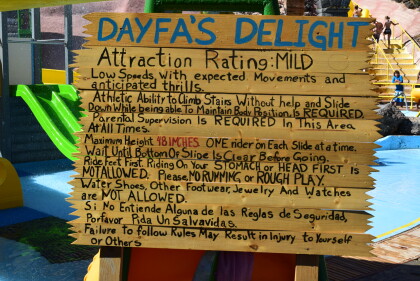 DAYFA'S DELIGHT
Attraction Rating: MILD
Low Speeds, With expected Movements and
anticipated thrills.
Athletic Ability to Climb Stairs Without help and Slide
Down While being Able To Maintain Body Position Is REQUIRED.
Parental Supervision Is REQUIRED In This Area
At All Times.
Maximum Height 48 INCHES. ONE rider on Each Slide at a time.
Wait Until Bottom Of Slide Is Clear Before Going.
Ride Feet First Riding On Your STOMACH or HEAD FIRST Is
NOT ALLOWED. Please, NO RUNNING or ROUGH PLAY.
Water Shoes, Other Footwear, Jewelry And Watches
are NOT ALLOWED.
Si No Entiende Alguna de las Reglas de Seguridad,
Porfavor, Pida Un Salvavidas.
Failure to follow Rules May Result in Injury to Yourself
or Others